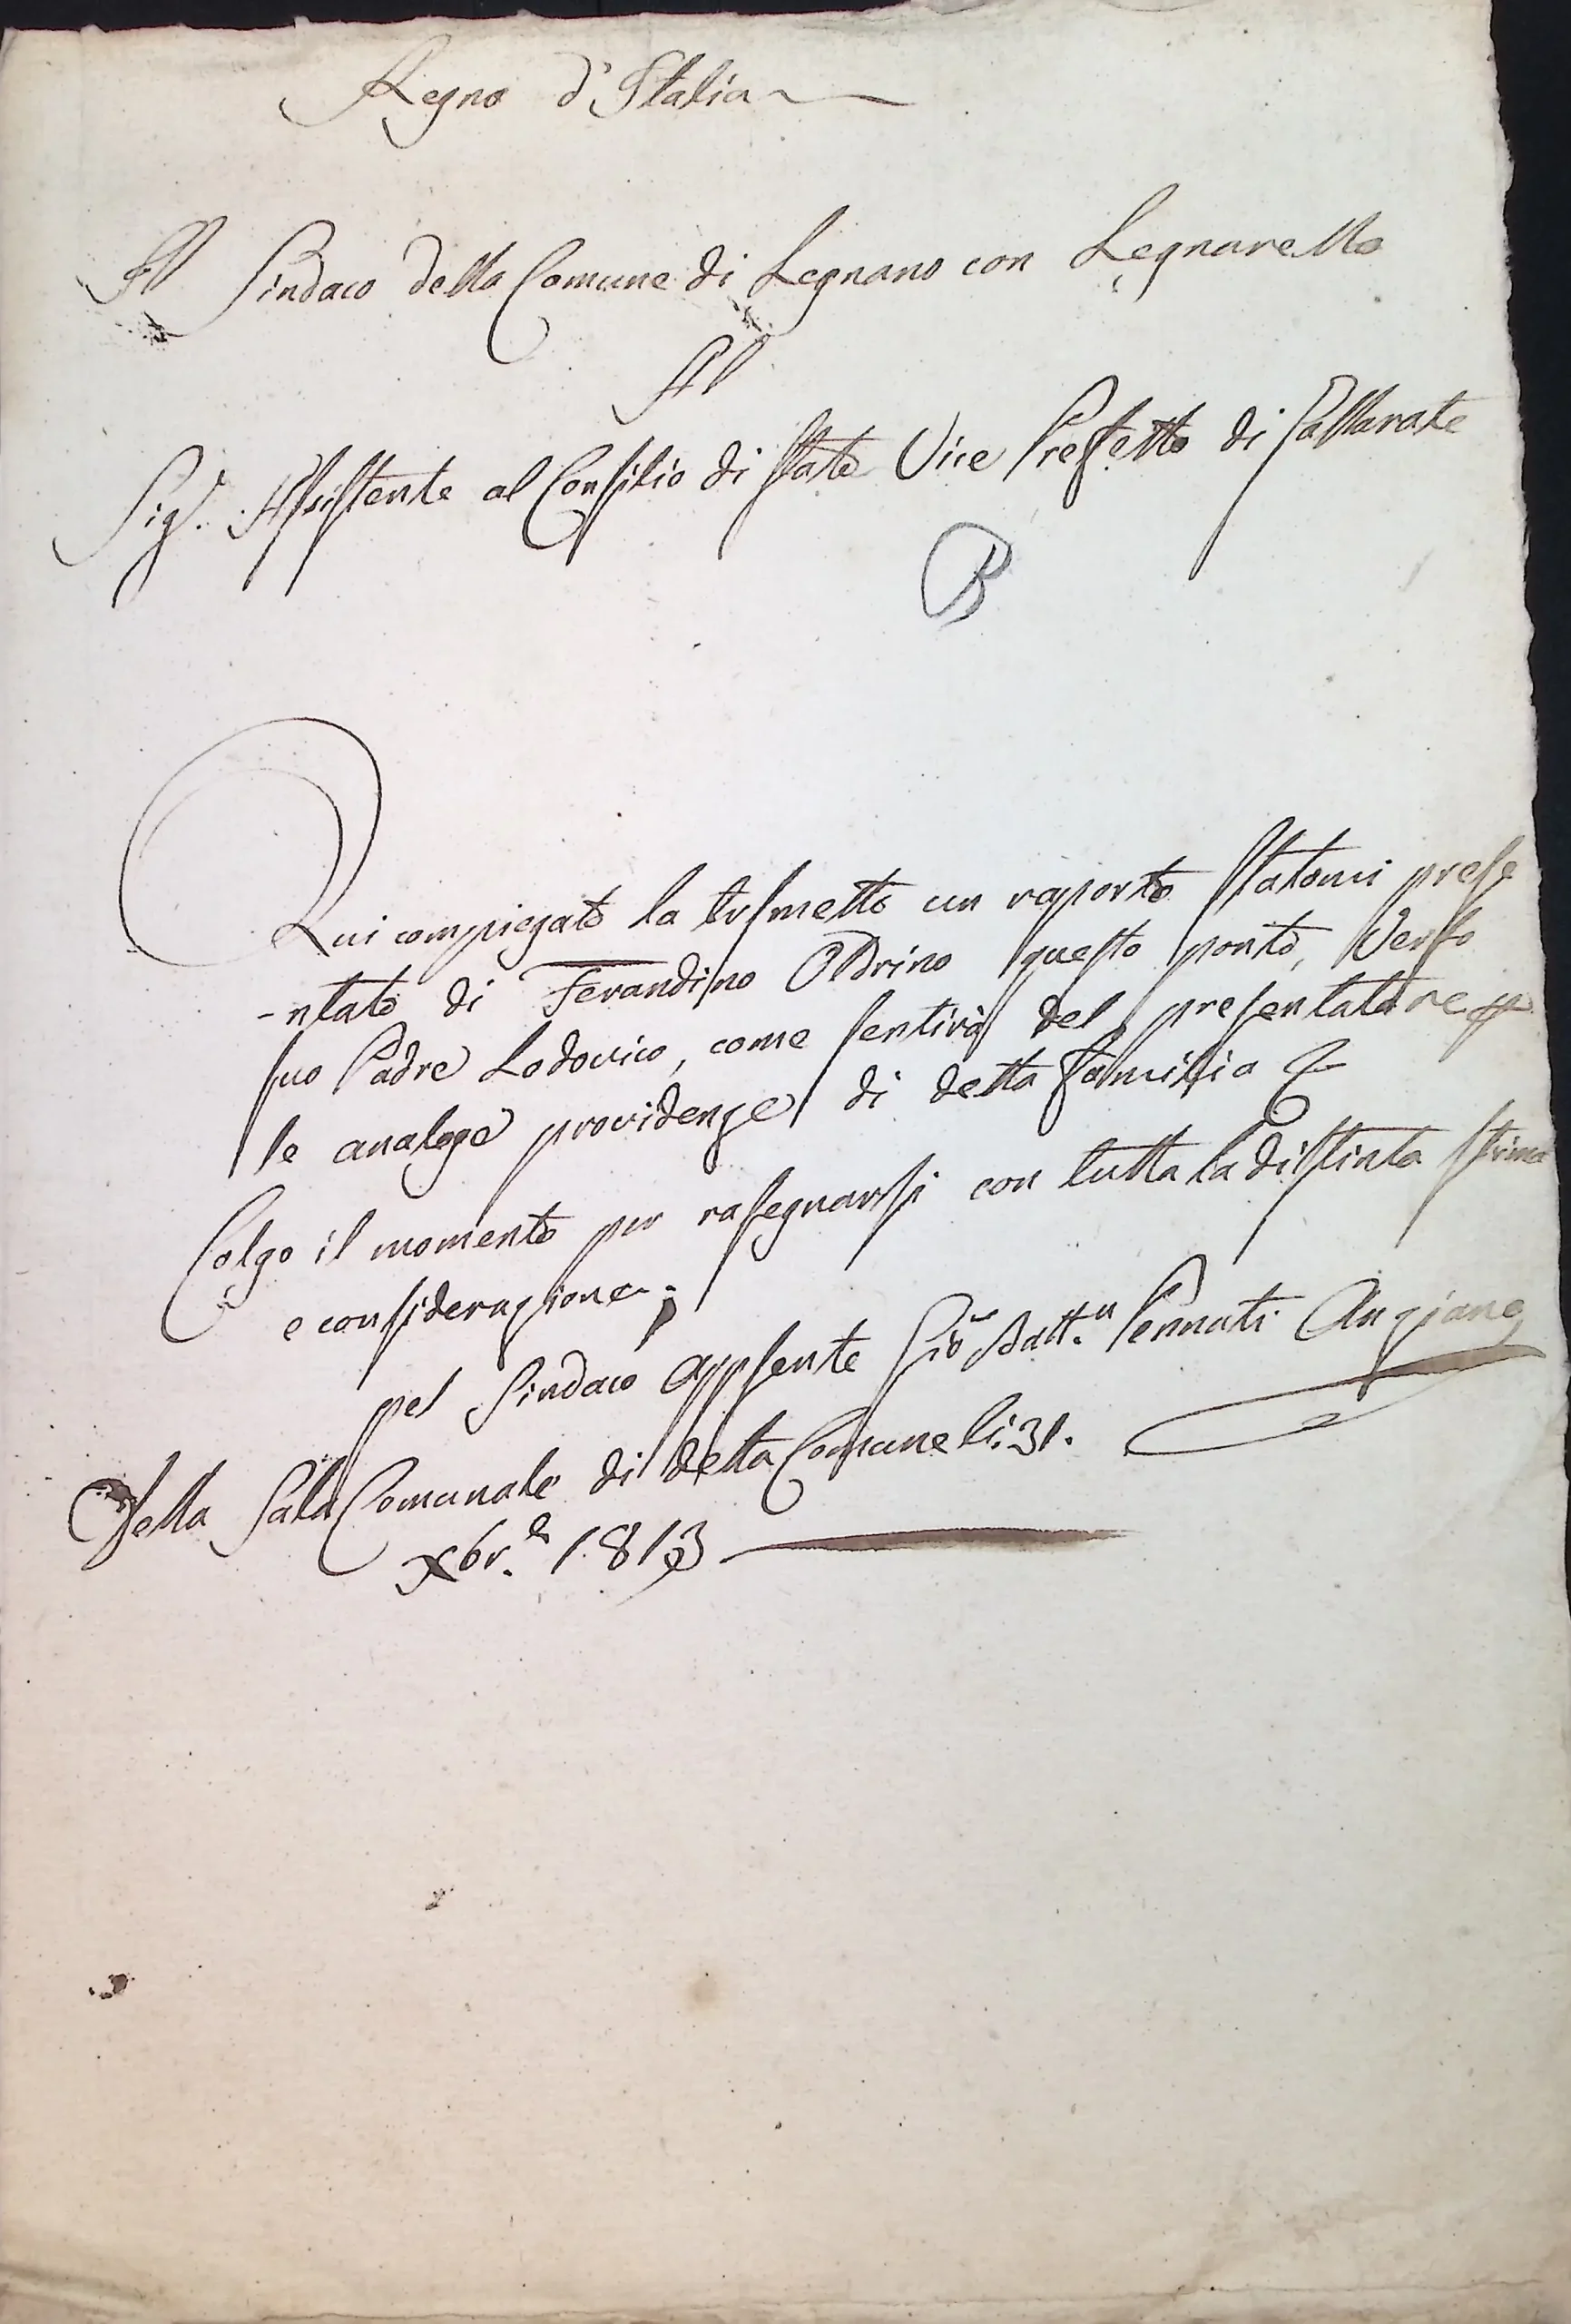 Regno d'Italia
Il Sindaco della Comune di Legnano con Legnarello
Al
Sig.r Assistente al Consilio di Stato Vice Prefetto di Gallarate
Qui compiegato la trsmetto un raporto statomi prese
-ntato di Ferandino Oldrino questo ponto, verso
suo Padre Lodovico, come sentirà del presentatore p
le analoge providenze di detta familia
Colgo il momento per rasegnarsi con tutta la distinta stima
e considerazione.
pel Sindaco Appsente Gio Batt.a Pennati Anziane
Della Sala Comunale di detta Comune li: 31.
Xbr.e 1813